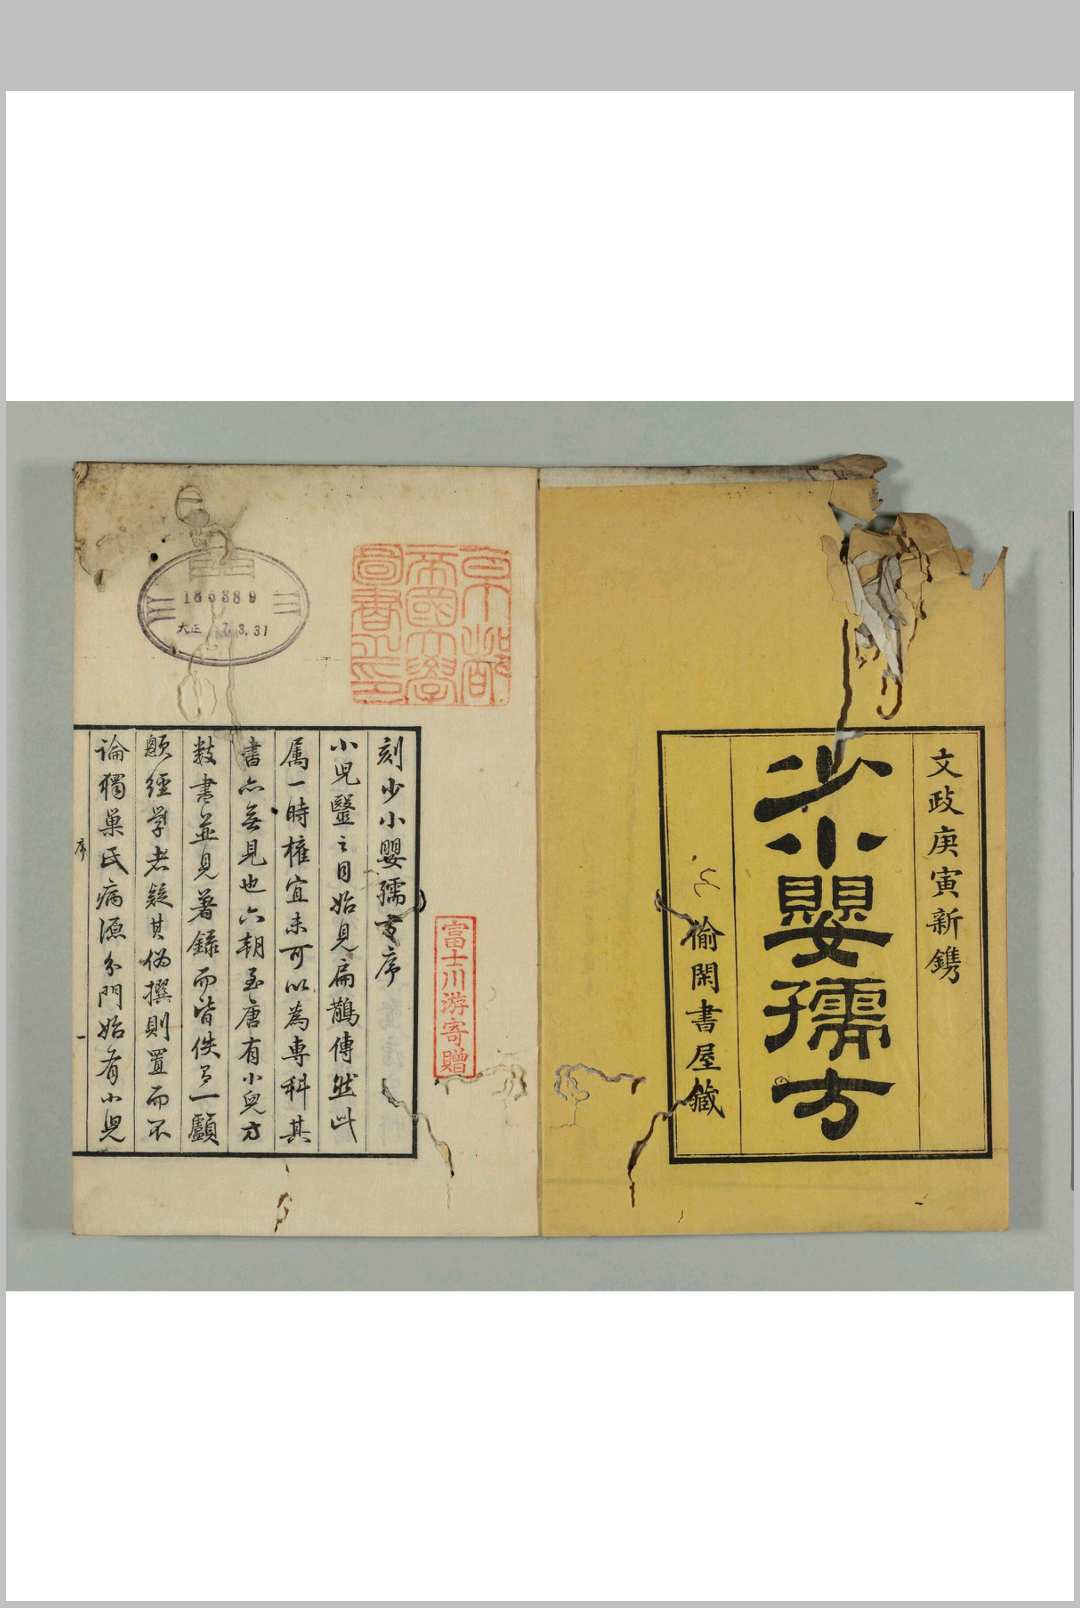 文政庚寅新鐫
少小嬰孺方
偷閑書屋藏
京都帝國大學圖書之印
富士川游寄贈
186389
大正 7.3.31
刻少小嬰孺方序
小兒醫之目始見扁鵲傳然此
属一時權宜未可以為專科其
書亦無見也六朝至唐有小兒方
數書並見著錄而皆佚了一顱
顖經學者疑其偽撰則置而不
論獨巢氏病源分門始有小兒
序
一